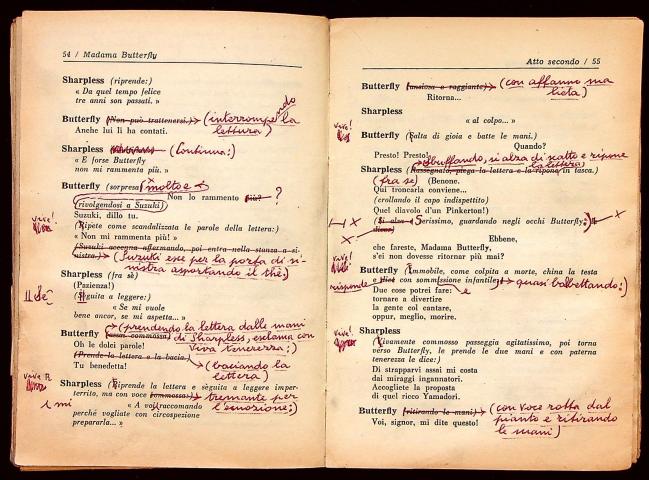 54 / Madama Butterfly
Sharpless (riprende:)
« Da quel tempo felice
tre anni son passati. »
Butterfly (Non può trattenersi.) (interrompendo la
lettura)
Anche lui li ha contati.
Sharpless (Continua:)
« E forse Butterfly
non mi rammenta più. »
Butterfly (sorpresa) molto e
Non lo rammento più? ?
(rivolgendosi a Suzuki)
Suzuki, dillo tu.
(Ripete come scandalizzata le parole della lettera:)
« Non mi rammenta più! »
(Suzuki accenna affermando, poi entra nella stanza a si-
nistra.) (Suzuki esce per la porta di si-
nistra asportando il thè;)
Sharpless (fra sè)
(Pazienza!)
(Seguita a leggere:)
« Se mi vuole
bene ancor, se mi aspetta... »
(prendendo la lettera dalle mani
Butterfly (assai commossa) di Sharpless, esclama con
viva tenerezza:)
Oh le dolci parole!
(Prende la lettera e la bacia.)
Tu benedetta! (baciando la
lettera)
Sharpless (Riprende la lettera e sèguita a leggere imper-
territo, ma con voce commossa:) tremante per
l'emozione;)
« A voi raccomando
mi
perché vogliate con circospezione
prepararla... »
Atto secondo / 55
Butterfly (ansiosa e raggiante) (con affanno ma
lieta)
Ritorna...
Sharpless
« al colpo... »
Butterfly (Salta di gioia e batte le mani.)
Quando?
Presto! Presto!
sbuffando, si alza di scatto e ripone
la lettera
Sharpless (Rassegnato, piega la lettera e la ripone in tasca.)
(fra sè) (Benone.
Qui troncarla conviene...
(crollando il capo indispettito)
Quel diavolo d'un Pinkerton!)
(Si alza Serissimo, guardando negli occhi Butterfly:)
Ebbene,
che fareste, Madama Butterfly,
s'ei non dovesse ritornar più mai?
Butterfly (Immobile, come colpita a morte, china la testa
risponde e con sommissione infantile quasi balbettando:)
Due cose potrei fare:
tornare a divertire
la gente col cantare,
oppur, meglio, morire.
Sharpless
(Vivamente commosso passeggia agitatissimo, poi torna
verso Butterfly, le prende le due mani e con paterna
tenerezza le dice:)
Di strapparvi assai mi costa
dai miraggi ingannatori.
Accogliete la proposta
di quel ricco Yamadori.
Butterfly (ritirando le mani) (con voce rotta dal
pianto e ritirando
le mani)
Voi, signor, mi dite questo!